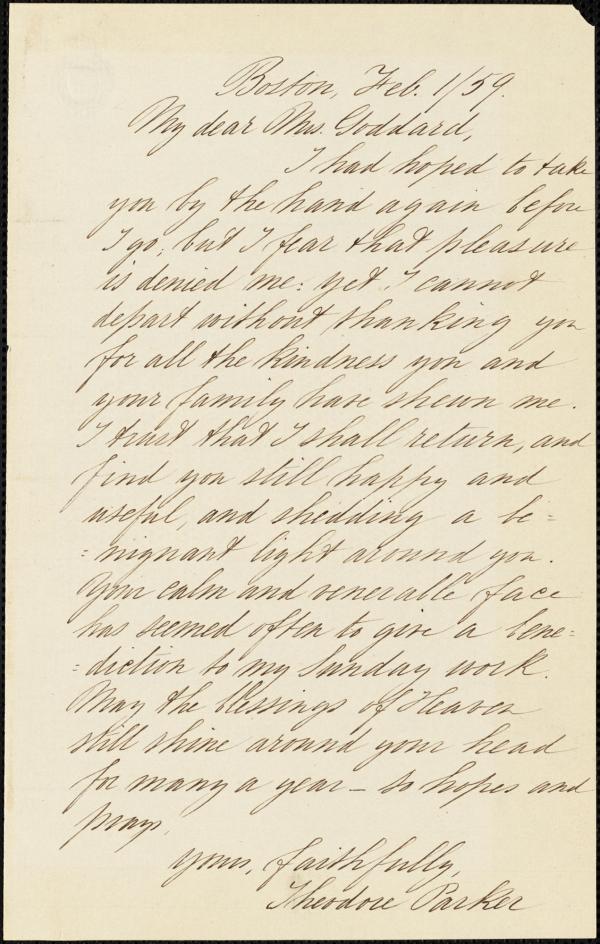 Boston, Feb. 1/59.
My dear Mrs. Goddard,
I had hoped to take
you by the hand again before
I go; but I fear that pleasure
is denied me: yet I cannot
depart without thanking you
for all the kindness you and
your family have shewn me.
I trust that I shall return, and
find you still happy and
useful, and shedding a be=
=nignant light around you.
Your calm and venerable face
has seemed often to give a bene=
=diction to my Sunday work.
May the blessings of Heaven
still shine around your head
for many a year – so hopes and
prays,
yours, faithfully,
Theodore Parker